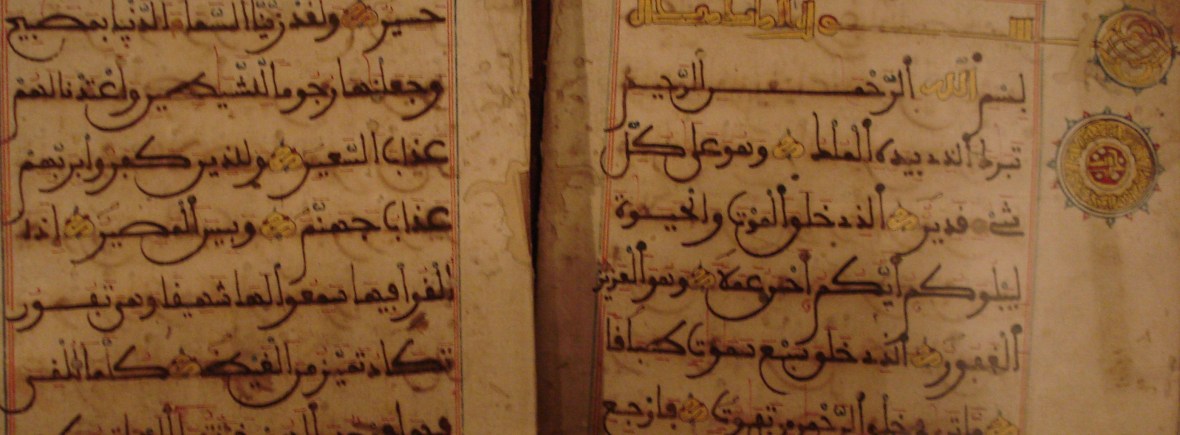 بسم الله الرحمن الرحيم
تبرك الذي بيده الملك وهو على كل
شيء قدير الذي خلق الموت والحيوة
ليبلوكم أيكم أحسن عملا وهو العزيز
الغفور الذي خلق سبع سموت طباقا
خلق الرحمن من تفوت فارجع
حسير ولقد زينا السماء الدنيا بمصبيح
وجعلنها رجوما للشيطين وأعتدنا لهم
عذاب السعير وللذين كفروا بربهم
عذاب جهنم وبيس المصير إذا
ألقوا فيها سمعوا لها شهيقا وهي تفور
تكاد تميز من الغيظ كلما ألقي